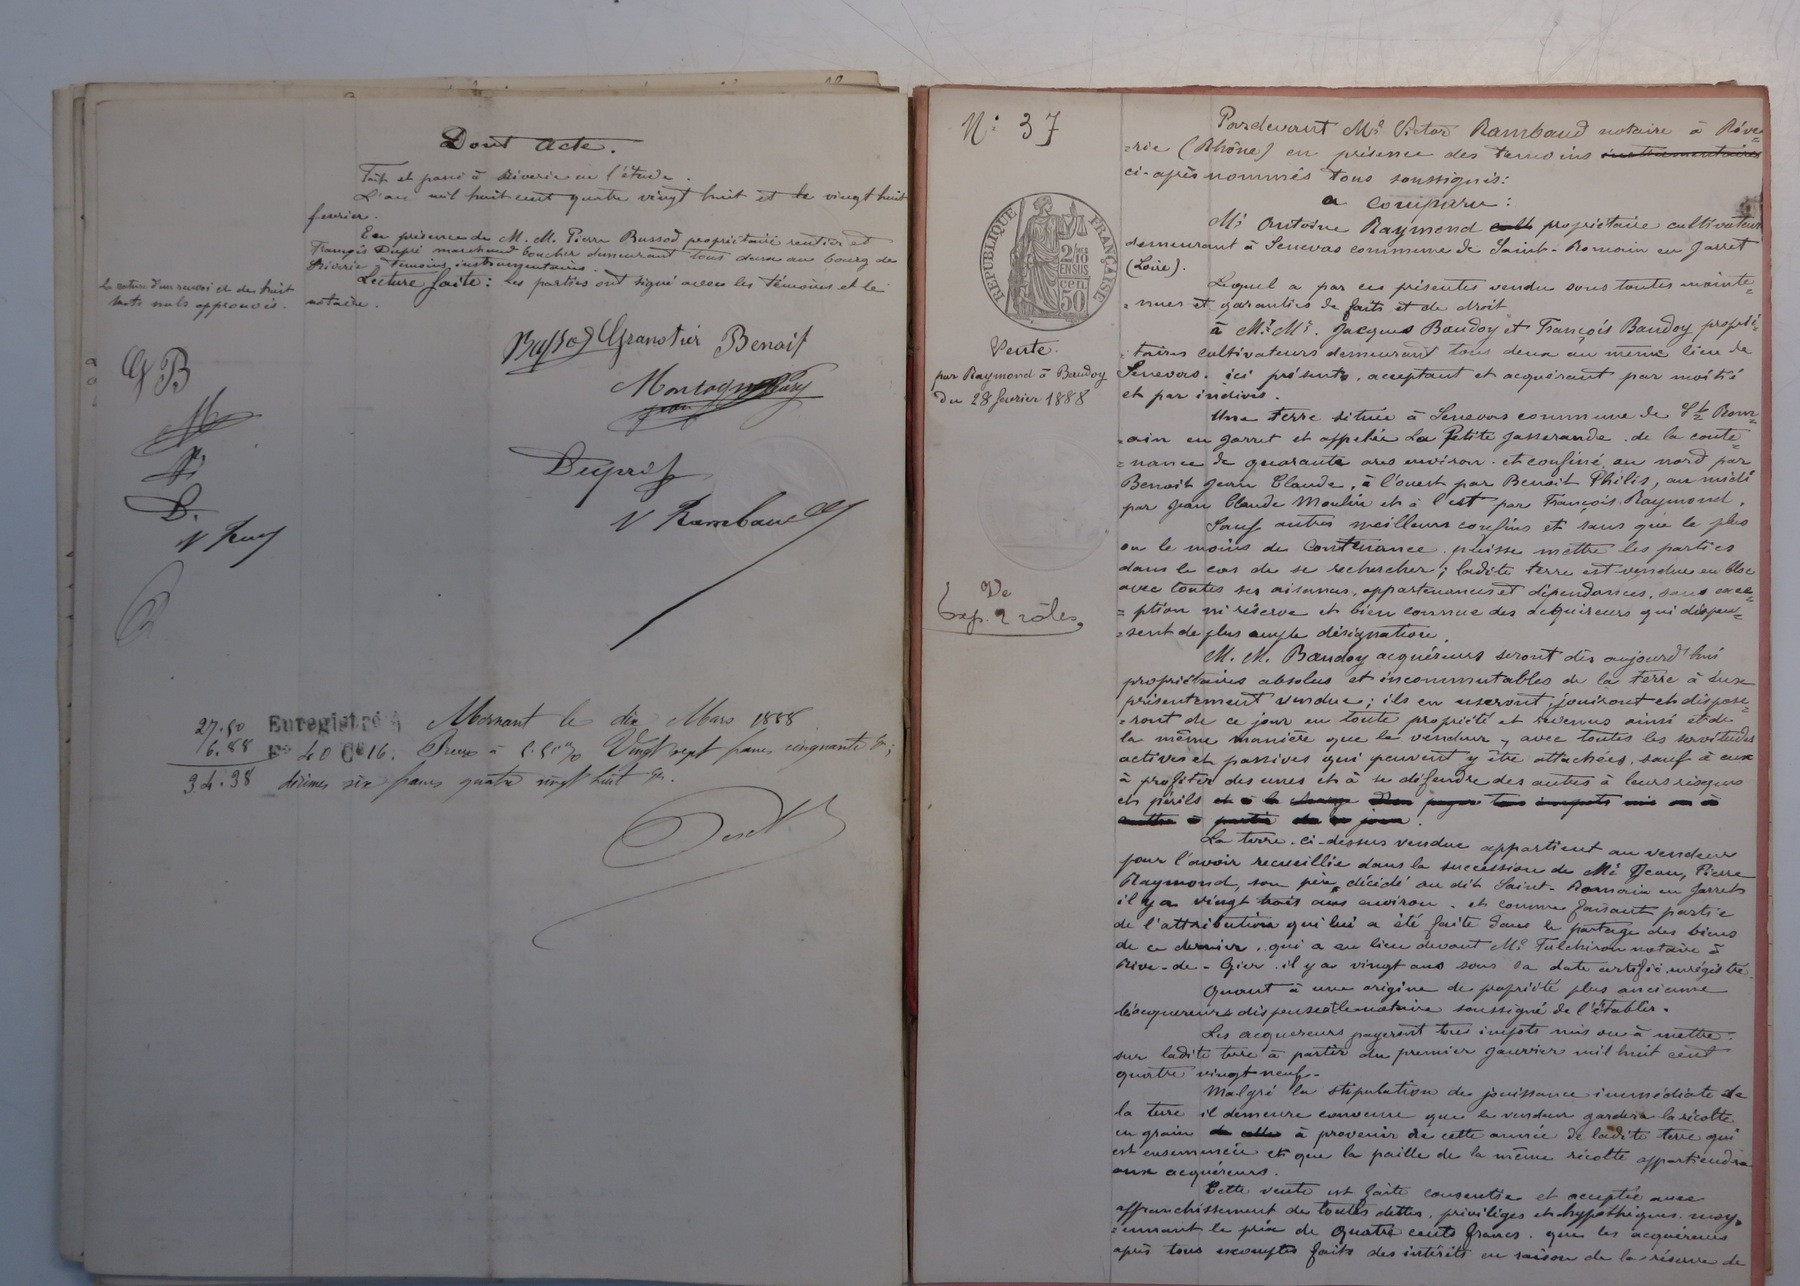 Dont Acte.
Fait et passé à Riverie en l'étude.
L'an mil huit cent quatre vingt huit et le vingt huit
fevrier.
En présence de M. M. Pierre Bussod propriétaire rentier et
François Dupré marchand boucher demeurant tous deux au bourg de
Riverie témoins instrumentaires.
Lecture faite: les parties ont signé avec les témoins et le
notaire.
La rature d'un renvoi et de huit
mots nuls approuvés.
Granotier Benoit
GB
V Rambaud
D.
27.50
6.88
34.38
Enregistré à Mornant le dix Mars 1888
Fo 40 Co 16. Reçu à 5.50 % Vingt sept francs cinquante c.;
décimes six francs quatre vingt huit c.
N° 37
RÉPUBLIQUE FRANÇAISE
2/10
EN SUS
50 cen
Vente.
par Raymond à Baudoy
du 28 fevrier 1888
Exp. 2 rôles
Pardevant Me Victor Rambaud notaire à Rive-
=rie (Rhône) en présence des témoins instrumentaires
ci-après nommés tous soussignés:
a comparu:
Mr Antoine Raymond cult propriétaire cultivateur
demeurant à Senevas commune de Saint-Romain en Jarret
(Loire).
Lequel a par ces présentes vendu sous toutes mainte=
=nues et garanties de faits et de droit
à Mr Mr. Jacques Baudoy et François Baudoy proprié-
taires cultivateurs demeurant tous deux au même lieu de
Senevas. ici présents, acceptant et acquérant par moitié
et par indivis.
Une terre située à Senevas commune de St Rom=
=ain en Jarret et appelée La Petite Jasserande. de la conte=
=nance de quarante ares environ. et confiné au nord par
Benoit Jean Claude, à l'ouest par Benoit Philis, au midi
par Jean Claude Moulin et à l'est par François Raymond.
Sauf autres meilleurs confins et sans que le plus
ou le moins de contenance puisse mettre les parties
dans le cas de se rechercher; ladite terre est vendue en bloc
avec toutes ses aisances, appartenances et dépendances, sans exce=
=ption ni réserve et bien connue des acquéreurs qui dispen=
=sent de plus ample désignation.
M. M. Baudoy acquéreurs seront dès aujourd'hui
propriétaires absolus et incommutables de la terre à eux
présentement vendue; ils en useront, jouiront et dispose=
=ront de ce jour en toute propriété et revenus ainsi et de
la même manière que le vendeur, avec toutes les servitudes
actives et passives qui peuvent y être attachées, sauf à eux
à profiter des unes et à se défendre des autres à leurs risques
et périls et à la charge d'en payer tous impots mis ou à
mettre à partir de ce jour.
La terre ci-dessus vendue appartient au vendeur
pour l'avoir recueillie dans la succession de Mr Jean, Pierre
Raymond, son père, décédé au dit Saint-Romain en Jarret
il y a vingt trois ans environ. et comme faisant partie
de l'attribution qui lui a été faite dans le partage des biens
de ce dernier, qui a eu lieu devant Me Fulchiron notaire à
Rive-de-Gier. il y a vingt ans sous sa date certifié enrégistré.
Quant à une origine de propriété plus ancienne
les acquereurs dispensent le notaire soussigné de l'établir.
Les acquereurs payeront tous impots mis ou à mettre
sur ladite terre à partir du premier janvier mil huit cent
quatre vingt neuf.
Malgré la stipulation de jouissance immédiate de
la terre il demeure convenu que le vendeur gardera la récolte
en grain de celle à provenir de cette année de ladite terre qui
est ensemencée et que la paille de la même récolte appartiendra
aux acquéreurs.
Cette vente est faite consentie et acceptée avec
affranchissement de toutes dettes, privilèges et hypothèques. moy=
=ennant le prix de quatre cents francs. que les acquéreurs
après tous escomptes faits des intérêts en raison de la réserve de